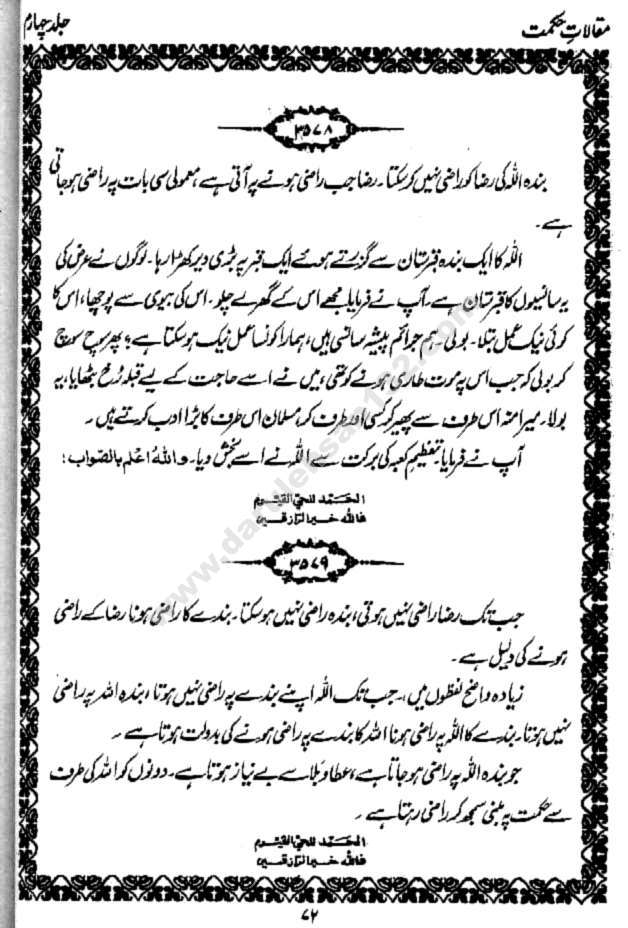 مقالاتِ حکمت
جلد چہارم
۳۵۷۸
بندہ اللہ کی رضا کو راضی نہیں کر سکتا۔ رضا جب راضی ہونے پہ آتی ہے، معمولی سی بات پہ راضی ہو جاتی
ہے۔
اللہ کا ایک بندہ قبرستان سے گزرتے ہوئے ایک قبر پہ بڑی دیر کھڑا رہا۔ لوگوں نے عرض کی
یہ سانسیوں کا قبرستان ہے۔ آپ نے فرمایا۔ مجھے اس کے گھر لے چلو۔ اس کی بیوی سے پوچھا، اس کا
کوئی نیک عمل بتلا۔ بولی۔ ہم جرائم پیشہ سانسی ہیں، ہمارا کونسا عمل نیک ہو سکتا ہے؟ پھر سوچ سوچ
کر بولی کہ جب اس پہ موت طاری ہونے کو تھی، میں نے اسے حاجت کے لیے قبلہ رُخ بٹھایا، یہ
بولا۔ میرا منہ اس طرف سے پھیر کر کسی اور طرف کر، مسلمان اس طرف کا بڑا ادب کرتے ہیں۔
آپ نے فرمایا۔ تعظیمِ کعبہ کی برکت سے اللہ نے اسے بخش دیا۔ واللہُ اعلم بالصّواب؛
الحَمد للحیّ القیّوم
فاللہ خیرالرّازقین
۳۵۷۹
جب تک رضا راضی نہیں ہوتی، بندہ راضی نہیں ہو سکتا۔ بندے کا راضی ہونا رضا کے راضی
ہونے کی دلیل ہے۔
زیادہ واضح لفظوں میں،۔ جب تک اللہ اپنے بندے پہ راضی نہیں ہوتا، بندہ اللہ پہ راضی
نہیں ہوتا۔ بندے کا اللہ پہ راضی ہونا اللہ کا بندے پہ راضی ہونے کی بدولت ہوتا ہے۔
جو بندہ اللہ پہ راضی ہو جاتا ہے، عطا و بلا سے بے نیاز ہوتا ہے۔ دونوں کو اللہ کی طرف
سے حکمت پہ مبنی سمجھ کر راضی رہتا ہے۔
الحَمد للحیّ القیّوم
فاللہ خیرالرّازقین
۷۲